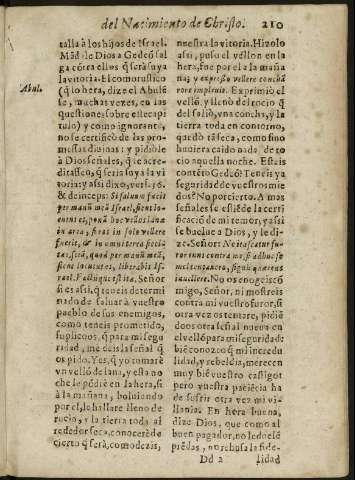 del Nacimiento de Christo. 210
talla à los hijos de Israel.
Mãdale Dios a Gedeõ sal
ga cõtra ellos q̃ serà suya
la vitoria. El como rustico
(q̃ lo hera, dize el Abulẽ
se, muchas vezes, en las
questiones sobre este capi
tulo) y como ignorante,
no se certificò de las pro-
messas diuinas: y pidiole
à Dios señales, q̃ le acre-
ditassẽ, q̃ seria suya la vi
toria: y assi dixo, vers.36.
& deinceps: Si saluum facis
per manũ meã Israel, sicut lo-
cutus es, ponã hoc vellus lanæ
in area, si ros in solo vellere
fuerit, & in omni terra siccitas,
sciã, quod per manũ meã,
sicut locutus es, liberabis Is-
rael. Factũque est ita. Señor
si es assi, q̃ teneis determi
nado de saluar à vuestro
pueblo de sus enemigos,
como teneis prometido,
suplicoos, q̃ para mi segu
ridad, me deis la señal q̃
os pido. Yes, q̃ yo tomarè
un vellõ de lana, y esta no
che le põdrè en la hera, si
à la mañana, boluiendo
por el, le hallare lleno de
rocio, y la tierra toda al
rededor seca, conocerè de
cierto q̃ serà, como dezis,
Abul.
nuestra la vitoria. Hizolo
assi, puso el vellon en la
hera, fue por el a la maña
na; y expresso vellere concham
rore impleuit. Exprimiò el
vellõ, y llenò del rocio q̃
del salio, vna concha, y la
tierra toda en contorno,
quedò tã seca, como sino
huuiera caido nada de ro
cio aquella noche. Estais
contẽto Gedeõ? Teneis ya
seguridad de vuestros mie
dos? No por cierto. A mas
señales se estiẽde la certi
ficaciõ de mi temor, y assi
se buelue a Dios, y le di-
ze: Señor: Ne irascatur fu-
ror tuus contra me si adhuc se
mel tentauero, signũ quærens
in vellere. No os enogeis cõ
migo, Señor, ni mostreis
contra mi vuestro furor, si
otra vez os tentare, pidiẽ
doos otra señal nueua en
el vellõ para mi seguridad:
biẽ conozco q̃ mi incredu
lidad, y rebeldia, merecen
muy biẽ vuestro castigo:
pero vuestra paciẽcia ha
de sufrir otra vez mi vi-
llania. En hora buena,
dize Dios, que como al
buen pagador, no le duelẽ
prẽdas, no rehusa la fide-
Dd 2 lidad